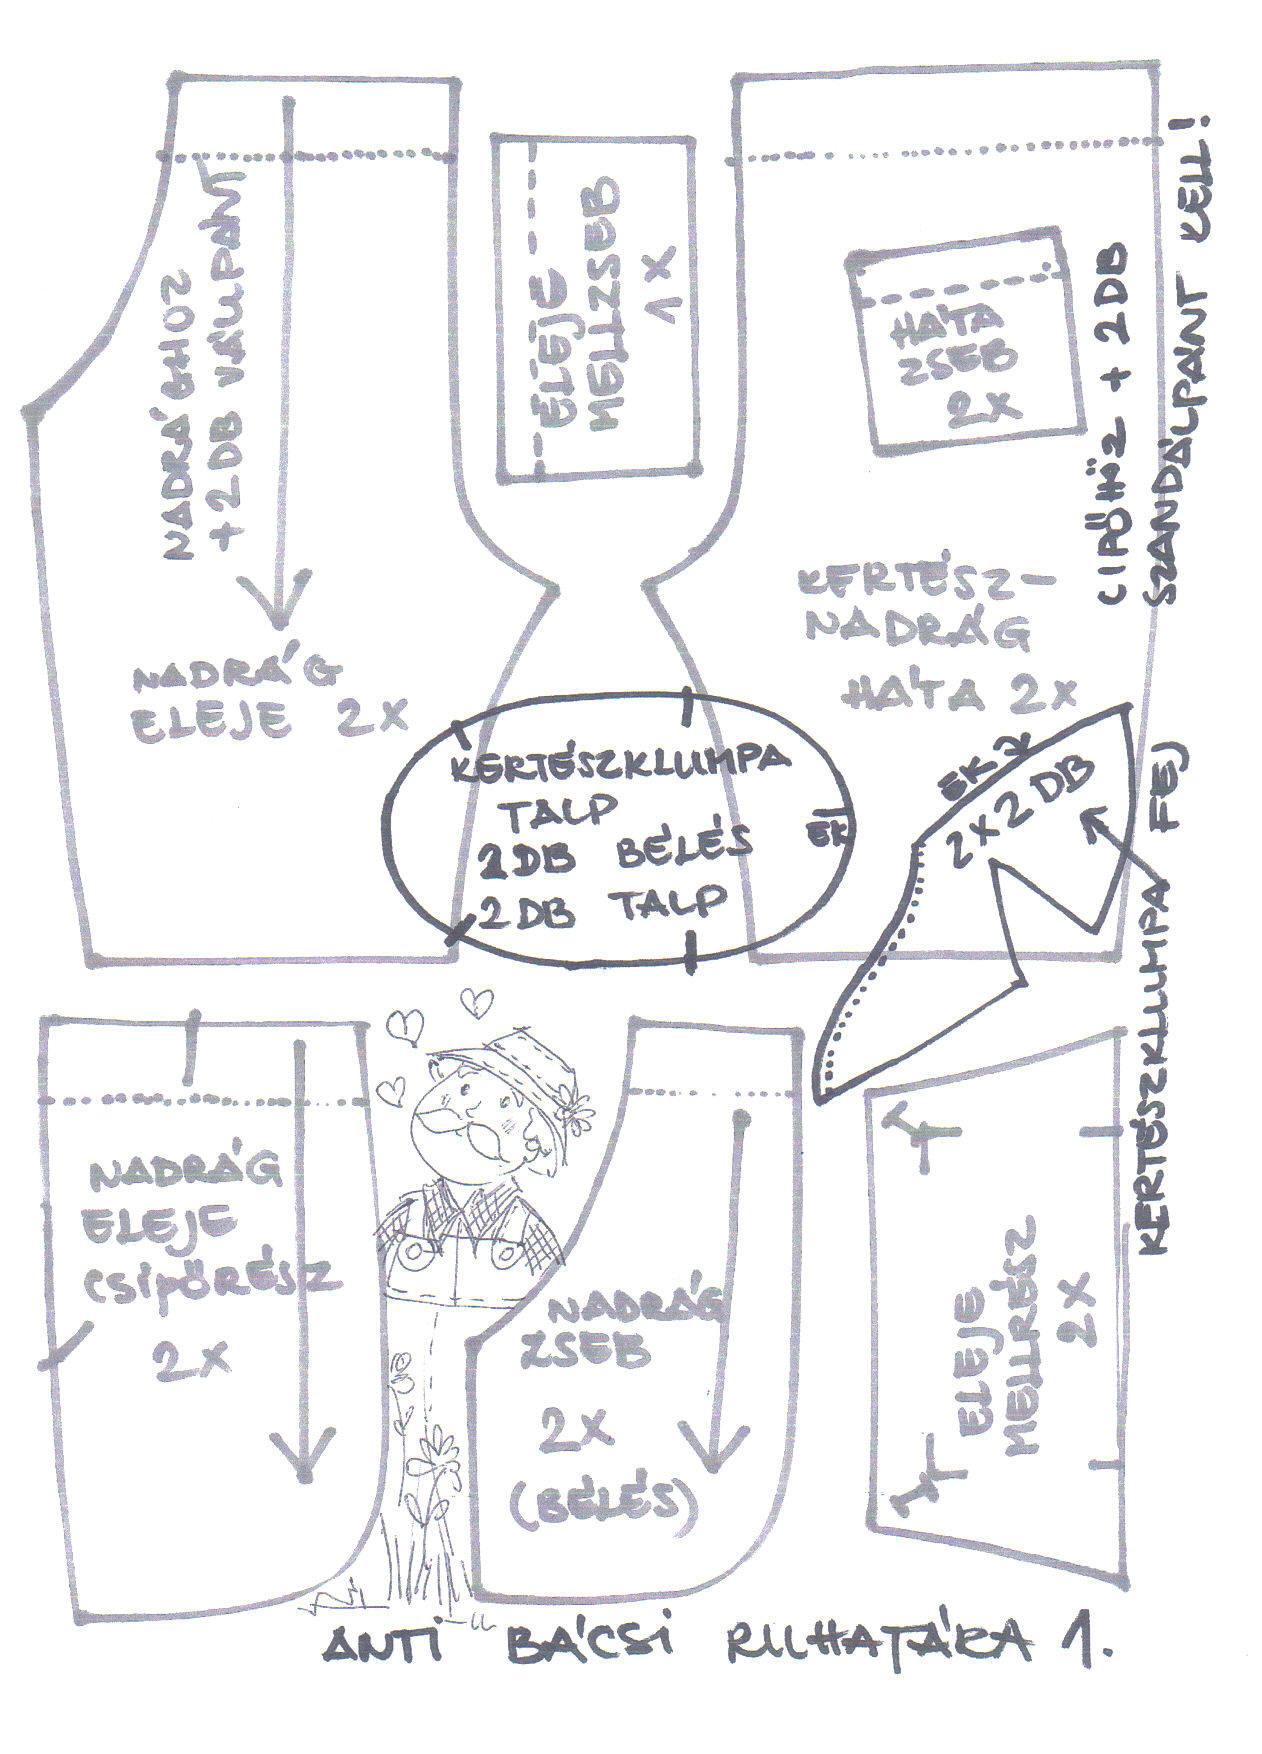 NADRÁGHOZ
+2DB VÁLLPÁNT
NADRÁG
ELEJE 2X
ELEJE
MELLZSEB
1X
HÁTA
ZSEB
2X
KERTÉSZ-
NADRÁG
HÁTA 2X
CIPŐHÖZ + 2DB
SZANDÁLPÁNT KELL!
KERTÉSZKLUMPA
TALP
2DB BÉLÉS
2DB TALP
EK
EK
2X2DB
KERTÉSZKLUMPA FEJ
NADRÁG
ELEJE
CSÍPŐRÉSZ
2X
NADRÁG
ZSEB
2X
(BÉLÉS)
ELEJE
MELLRÉSZ
2X
ANTI BÁCSI RUHATÁRA 1.